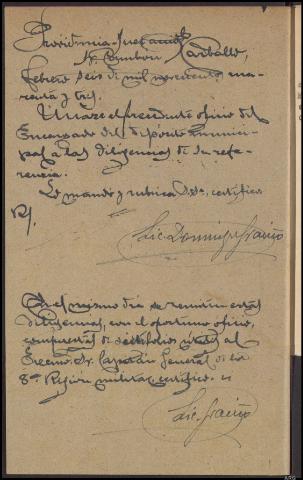 Providencia Juez
Carballo,
febrero seis de mil novecientos cua-
renta y tres.
Unase el precedente oficio del
Encargado del depósito munici-
pal a las diligencias de su refe-
rencia.
Lo mandó y rubrica S.Sª, certifico
En el mismo día se remiten estas
diligencias, con el oportuno oficio,
compuestas de folios al
Excmo. Sr. Capitán General de la
8ª Región militar, certifico.